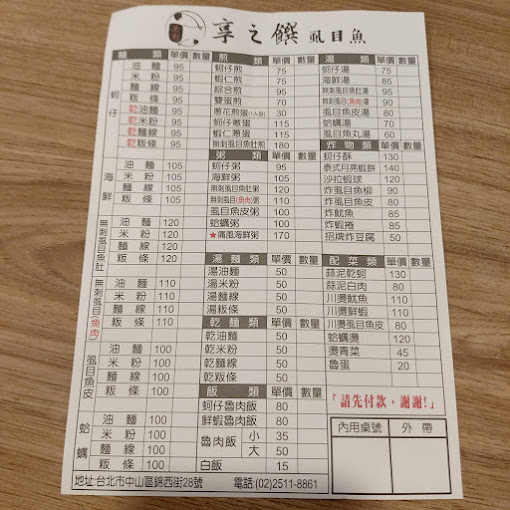 享之饌 虱目魚
麵類 單價 數量
蚵仔
油麵 95
米粉 95
麵線 95
粄條 95
乾油麵 95
乾米粉 95
乾麵線 95
乾粄條 95
海鮮
油麵 105
米粉 105
麵線 105
粄條 105
無刺虱目魚肚
油麵 120
米粉 120
麵線 120
粄條 120
無刺虱目(魚肉)
油麵 110
米粉 110
麵線 110
粄條 110
虱目魚皮
油麵 100
米粉 100
麵線 100
粄條 100
蛤蠣
油麵 100
米粉 100
麵線 100
粄條 100
煎類 單價 數量
蚵仔煎 75
蝦仁煎 75
綜合煎 95
雙蛋煎 70
30
蚵仔蔥蛋 115
蝦仁蔥蛋 115
無刺虱目魚肚煎 180
粥類 單價 數量
蚵仔粥 95
海鮮粥 105
無刺虱目魚肚粥 120
無刺虱目(魚肉)粥 110
虱目魚皮粥 100
蛤蠣粥 100
★痛風海鮮粥 170
湯麵類 單價 數量
湯油麵 50
湯米粉 50
湯麵線 50
湯粄條 50
乾麵類 單價 數量
乾油麵 50
乾米粉 50
乾麵線 50
乾粄條 50
飯類 單價 數量
蚵仔魯肉飯 80
鮮蝦魯肉飯 80
魯肉飯 小 35
大 50
白飯 15
湯類 單價 數量
蚵仔湯 75
海鮮湯 85
無刺虱目魚肚湯
無刺虱目(魚肉)湯 90
虱目魚皮湯 80
蛤蠣湯 70
虱目魚丸湯 60
炸物類 單價 數量
蚵仔酥 130
泰式月亮蝦餅 140
沙拉蝦球 120
炸虱目魚柳 90
炸虱目魚皮 80
炸魷魚 80
炸蝦捲 80
招牌炸豆腐 50
配菜類 單價 數量
蒜泥乾蚵 130
蒜泥白肉 80
川燙魷魚 110
川燙鮮蝦 110
川燙虱目魚皮 80
蛤蠣燙 120
燙青菜 45
魯蛋 20
「請先付款，謝謝!」
內用桌號 外帶
地址:台北市中山區錦西街28號 電話:(02)2511-8861